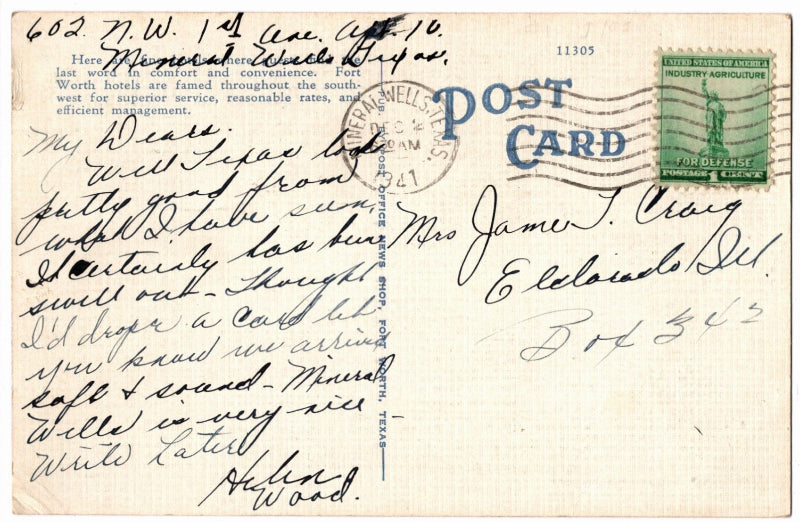 602 N.W. 1st Ave. Apt. 10.
Mineral Wells Texas.
Here are fine hotels where guests the
last word in comfort and convenience. Fort
Worth hotels are famed throughout the south-
west for superior service, reasonable rates, and
efficient management.
My Dears.
Well Texas looks
pretty good from
what I have seen,
It certainly has been
swell out – Thought
I'd drope a card let
you know we arrived
safe & sound – Mineral
Wells is very nice –
Write Later
Helen
Wood.
POST OFFICE NEWS SHOP, FORT WORTH, TEXAS
11305
POST
CARD
MINERAL WELLS, TEXAS.
DEC 2
AM
1941
UNITED STATES OF AMERICA
INDUSTRY AGRICULTURE
FOR DEFENSE
POSTAGE 1 CENT
Mrs James T. Craig
Eldorado Ill.
Box 342